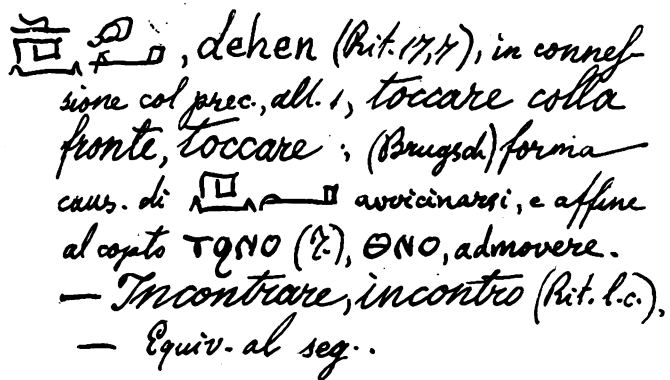 , dehen (Rit. 17,7), in connes-
sione col prec., all. 1, toccare colla
fronte, toccare ; (Brugsch) forma
caus. di avvicinarsi, e affine
al copto (T.), ⲑⲛⲟ, admovere.
— Incontrare, incontro (Rit. l.c.),
— Equiv. al seg..